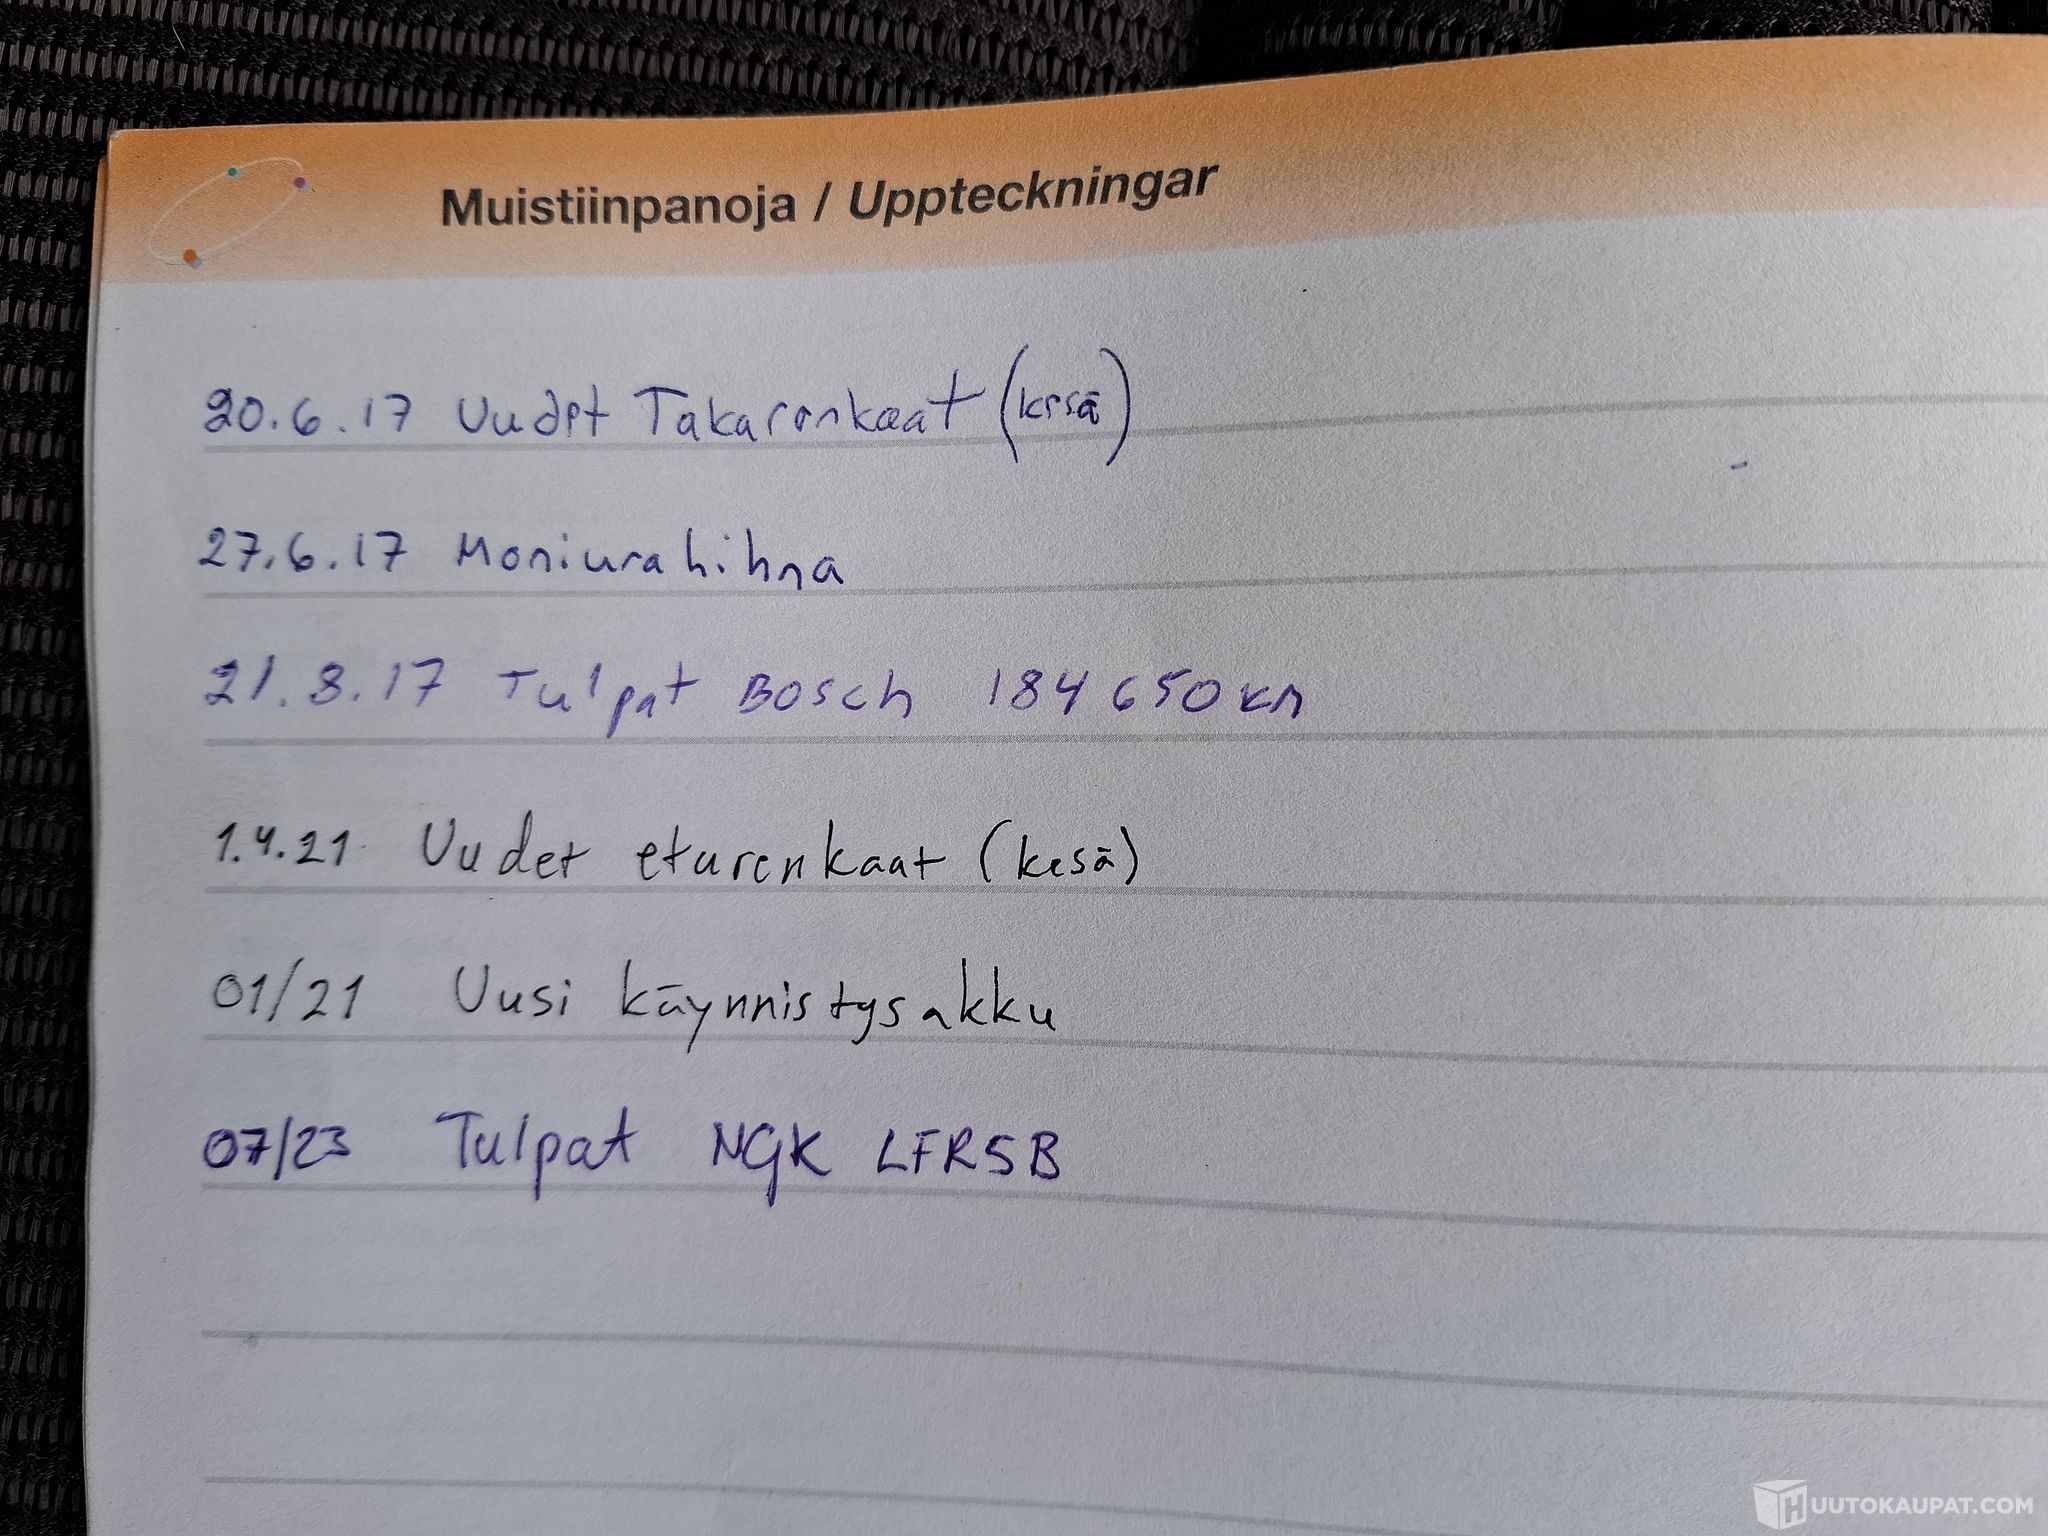 Muistiinpanoja / Uppteckningar
20.6.17 Uudet Takarenkaat (kesä)
27.6.17 Moniurahihna
21.8.17 Tulpat BOSCH 184 650 km
1.4.21 Uudet eturenkaat (kesä)
01/21 Uusi käynnistysakku
07/23 Tulpat NGK LFR5B
HUUTOKAUPAT.COM